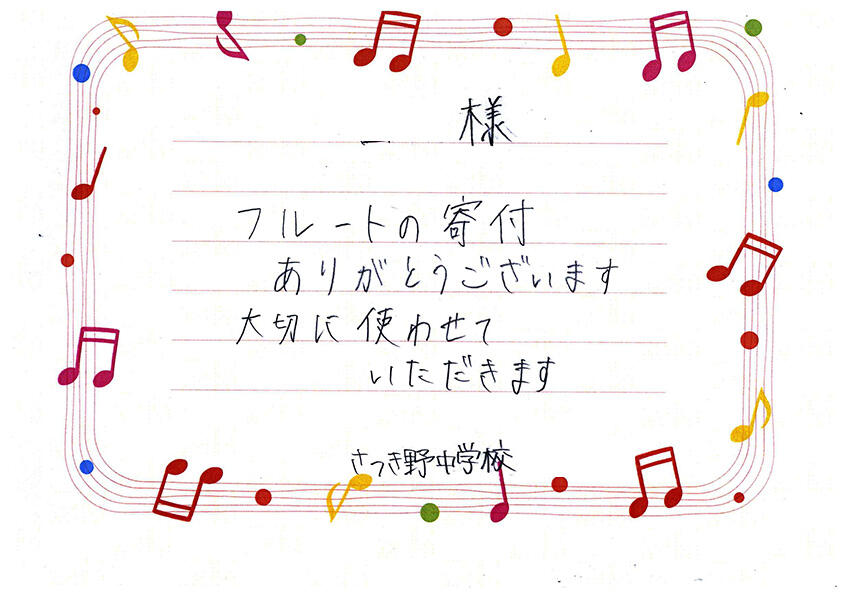 様
フルートの寄付
ありがとうございます
大切に使わせて
いただきます
さつき野中学校